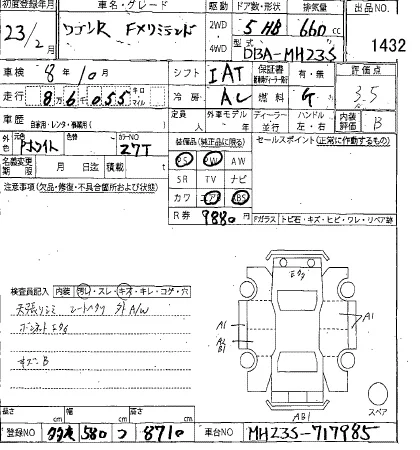 初度登録年月 車名・グレード 駆動 ドア数・形状 排気量 出品NO
23/2月 ワゴンR FXリミテッド 2WD 4WD 5 HB 660cc 1432
型式 DBA-MH23S
車検 8年10月 シフト IAT 保証書 有・無 評価点
走行 86055 キロ マイル 冷房 AC 燃料 G 3.5
車歴 自家用・レンタ・事業用( ) 定員 人 外車モデル 年 ディーラー 並行 ハンドル 左・右 内装評価 B
外色 Pホワイト 色替 カラーNO Z7T 装備品(純正品に限る) セールスポイント(正常に作動するもの)
PS PW AW
名義変更期限 月 日迄 積載 t SR TV ナビ
注意事項(欠品・修復・不具合箇所および状態) カワ エアB ABS
R券 9880円 Fガラス トビ石・キズ・ヒビ・ワレ・リペア跡
検査員記入 内装 汚れ・スレ・キズ・キレ・コゲ・穴
天張りシミ シートヘタリ 外A/W
ボンネットエクボ
キズB
エクボ
A1 A1
A2
B1
AB1
スペア
長さ cm 幅 cm 高さ cm
登録NO 580 つ 8710 車台NO MH23S-717985